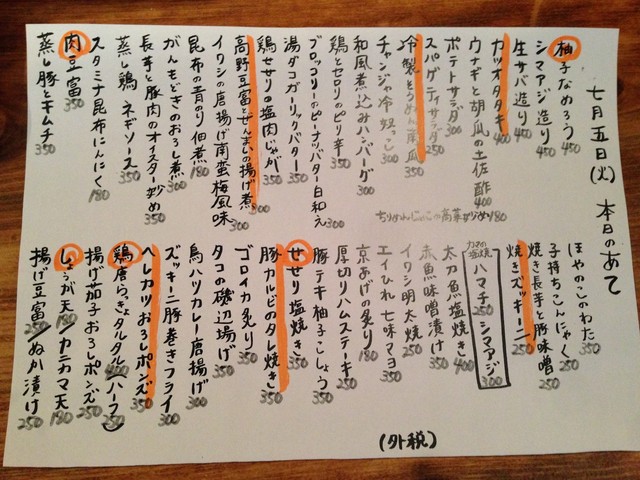 七月五日(火) 本日のあて
柚子なめろう 450
シマアジ造り 450
生サバ造り 450
カツオタタキ 400
ウナギと胡瓜の土佐酢 400
ポテトサラダ 300
スパゲティサラダ 250
冷製とうめん南瓜 350
チャンジャ冷奴っこ 300
和風煮込みハンバーグ 300
鶏とセロリのピリ辛 350
ブロッコリーのピーナッツバター白和え 300
湯ダコガーリックバター 350
鶏セセリの塩肉じゃが 350
高野豆富とぜんまいの揚げ煮 300
イワシの唐揚げ南蛮梅風味 350
昆布の青のり佃煮 180
がんもどきのおろし煮 300
長芋と豚肉のオイスター炒め 350
蒸し鶏 ネギソース 350
スタミナ昆布にんにく 180
肉豆富 350
蒸し豚とキムチ 350
ちりめんじゃこの高菜炒め 180
ほやのこのわた 350
子持ちこんにゃく 250
焼き長芋と豚味噌 250
焼きズッキーニ 250
カマの塩焼 ハマチ 250 シマアジ 300
太刀魚塩焼き 400
赤魚味噌漬け 350
イワシ明太焼 250
エイひれ七味マヨ 350
京あげの炙り 180
厚切りハムステーキ 250
豚テキ柚子こしょう 350
せせり塩焼き 350
豚カルビのタレ焼き 350
ゴロイカ炙り 350
タコの磯辺揚げ 350
鳥ハツカレー唐揚げ 300
ズッキーニ豚巻きフライ 300
ヘレカツおろしポンズ 350
鶏唐らっきょタルタル(ハーフ) 400 250
揚げ茄子おろしポンズ 250
しょうが天 180/カニカマ天 180
揚げ豆富 250/ぬか漬け 250
(外税)